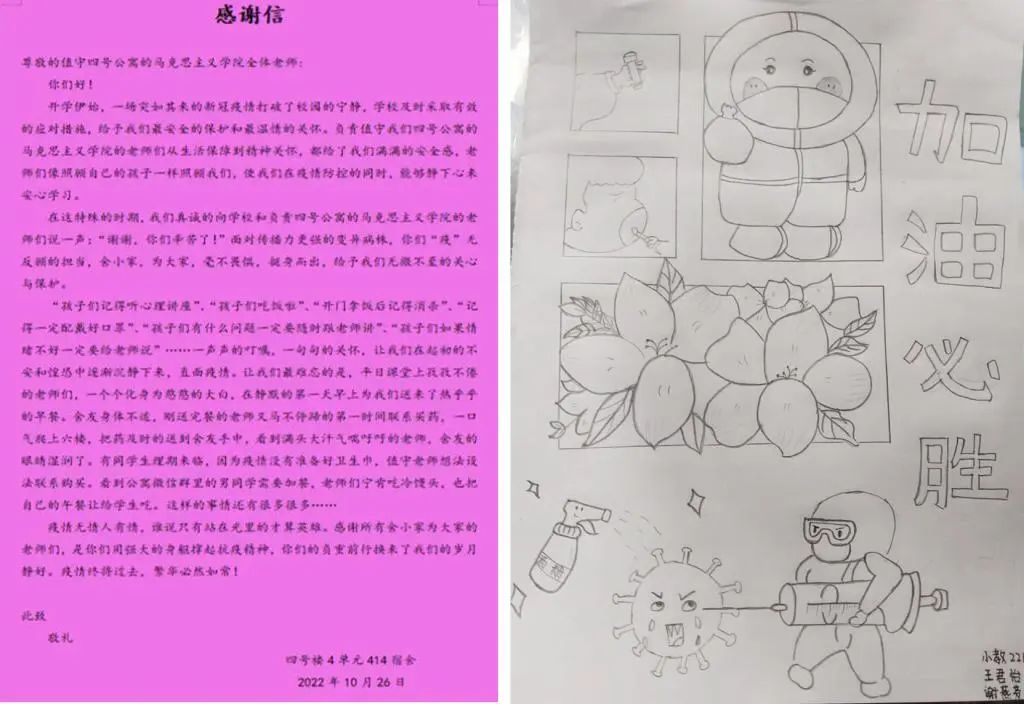 感谢信
尊敬的值守四号公寓的马克思主义学院全体老师：
你们好！
开学伊始，一场突如其来的新冠疫情打破了校园的宁静，学校及时采取有效
的应对措施，给予我们最安全的保护和最温情的关怀。负责值守我们四号公寓的
马克思主义学院的老师们从生活保障到精神关怀，都给了我们满满的安全感，老
师们像照顾自己的孩子一样照顾我们，使我们在疫情防控的同时，能够静下心来
安心学习。
在这特殊的时期，我们真诚的向学校和负责四号公寓的马克思主义学院的老
师们说一声：“谢谢，你们辛苦了！”面对传播力更强的变异病株，你们“疫”无
反顾的担当，舍小家，为大家，毫不畏惧，挺身而出，给予我们无微不至的关心
与保护。
“孩子们记得听心理讲座”、“孩子们吃饭啦”、“开门拿饭后记得消杀”、“记
得一定配戴好口罩”、“孩子们有什么问题一定要随时跟老师讲”、“孩子们如果情
绪不好一定要给老师说”……一声声的叮嘱，一句句的关怀，让我们在起初的不
安和惶恐中逐渐沉静下来，直面疫情。让我们最难忘的是，平日课堂上孜孜不倦
的老师们，一个个化身为憨憨的大白，在静默的第一天早上为我们送来了热乎乎
的早餐。舍友身体不适，刚送完餐的老师又马不停蹄的第一时间联系买药，一口
气爬上六楼，把药及时的送到舍友手中，看到满头大汗气喘吁吁的老师，舍友的
眼睛湿润了。有同学生理期来临，因为疫情没有准备好卫生巾，值守老师想法设
法联系购买。看到公寓微信群里的男同学需要加餐，老师们宁肯吃冷馒头，也把
自己的午餐让给学生吃。这样的事情还有很多很多……
疫情无情人有情，谁说只有站在光里的才算英雄。感谢所有舍小家为大家的
老师们，是你们用强大的身躯撑起抗疫精神，你们的负重前行换来了我们的岁月
静好。疫情终将过去，繁华必然如常！
此致
敬礼
四号楼4单元414宿舍
2022年10月26日
加油必胜
小教221
王君怡